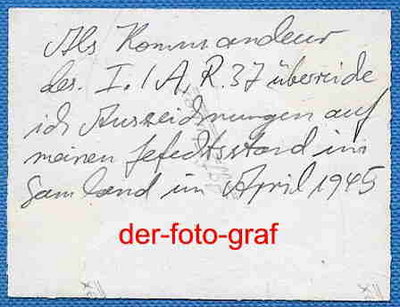 Als Kommandeur
des I./A.R.37 überreiche
ich Auszeichnungen auf
meinen Gefechtsstand im
Samland im April 1945
der-foto-graf